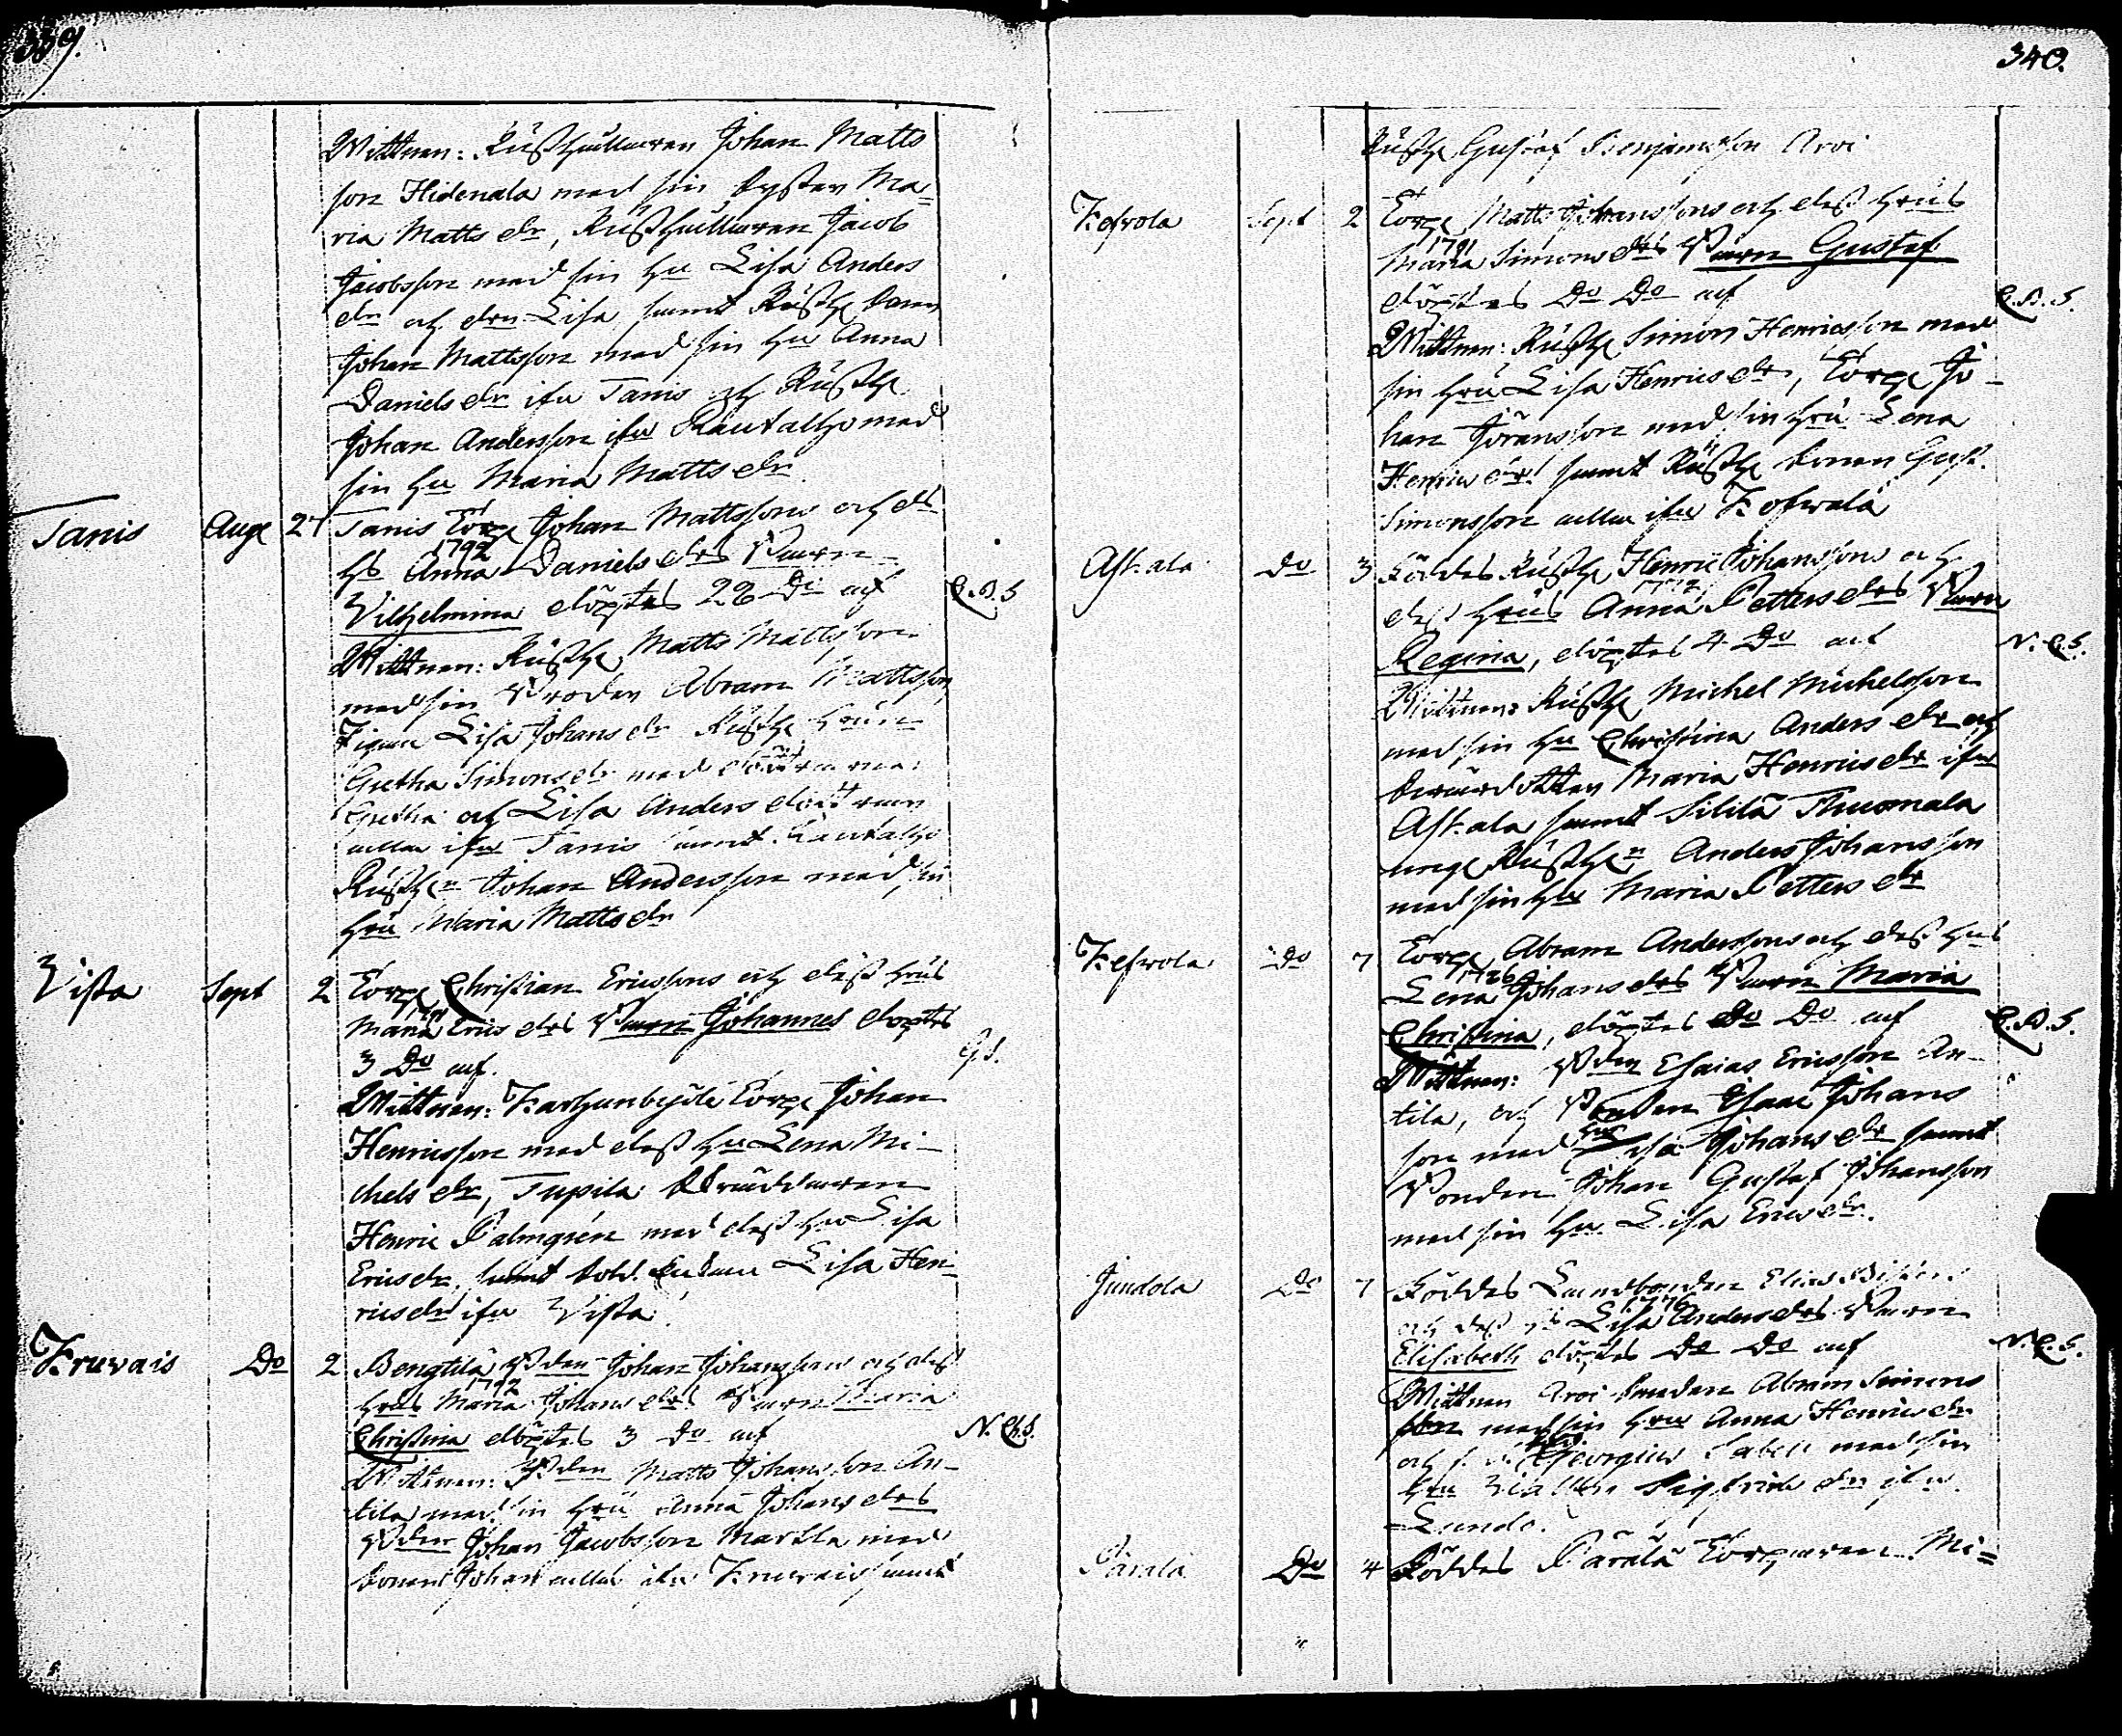 339.
Wittnen: Rusthållaren Johan Matts
son Hidenala med sin syster Ma=
ria Matts dr, Rusthållaren Jacob
Jacobsson med sin hu Lisa Anders
dr och drn Lisa samt Rusth sonen
Johan Mattsson med sin hu Anna
Daniels dr ifrn Tanis och Rusth
Johan Andersson ifrn Rautalho med
sin hu Maria Matts dr
Tanis Aug 27 Tanis Torp Johan Mattssons och ds
hs Anna 1792 Daniels drs Barn
Vilhelmina döptes 28 Do af C.A.S
Wittnen: Rusth Matts Mattsson
med sin Broder Abram Mattsson
Pigan Lisa Johans dr Rusth hrun
Gretha Simons dr med döttrarna
Gretha och Lisa Anders döttrarn
alla ifrn Tanis samt Rautalho
Rusthn Johan Andersson med sin
hru Maria Matts dr
Vista Sept 2 Torp Christian Ericssons och dess hrus
Maria Erics drs Barn Johannes döptes
3 Do af. G.S.
Wittnen: Karhunbyole Torp Johan
Henricsson med dess hu Lena Mi-
chels dr, Tupila
Henric Palmgrén med dess hu Lisa
Erics dr, samt Sold. Enkan Lisa Hen-
rics dr ifrn Vista
Kruvais Do 2 Bengtilä Bden Johan Johanssons och dess
hrus Maria 1792 Johans drs Barn Maria
Christina döptes 3 Do af N.C.S.
Wittnen: Bden Matts Johansson An-
tila med sin hru Anna Johans drs
Bden Johan Jacobsson Markla med
sonen Johan alla ifrn Kruvais samt
340.
Rusth Gustaf Benjamsson Aroi
Kefvola Sept 2 Torp Matts Johanssons och dess hrus
Maria 1791 Simons drs Barn Gustaf
döptes Do Do af C.A.S.
Wittnen: Rusth Simon Henricsson med
sin hru Lisa Henrics dr, Torp Jo-
han Jöransson med sin hru Lena
Henrics dr samt Rusth sonen Gust.
Simonsson alla ifrn Kofwala
Askala Do 3 Föddes Rusth Henric Johanssons och
dess hrus Anna Petters drs Barn
Regina, döptes 4 Do af N.C.S.
Wittnen: Rusth Michel Michelsson
med sin hu Christina Anders dr och
Maria Henrics dr ifrn
Askala samt Lilila Thuomala
unge Rusthn Anders Johansson
med sin hu Maria Petters dr
Kefvola Do 7 Torp Abram Anderssons och dess hus
Lena Johans drs Barn Maria
Christina, döptes Do Do af C.A.S.
Wittnen: Bden Esaias Ericsson An-
tila, och Bonden Isaac Johans
son med hru Lisa Johans dr samt
Bonden Johan Gustaf Johansson
med sin hu Lisa Erics dr.
Jundola Do 7 Föddes Lundbonden Elias
och dess hs Lisa 1776 Anders drs Barn
Elisabeth döptes Do Do af N.C.S.
Wittnen Aroi bonden Abram Simons
son med sin hru Anna Henrics dr
och Georgius Sabell med sin
hru Sigfrids dr ifrn
Lundo.
Pärälä Do 4 Föddes Pärälä Torparen Mi=